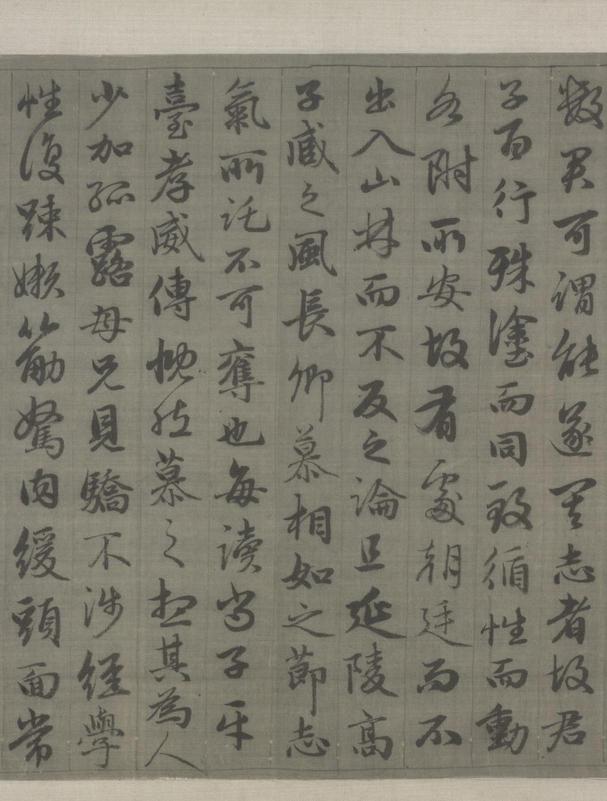 數君可謂能遂其志者故君
子百行殊塗而同致循性而動
各附所安故有處朝廷而不
出入山林而不反之論且延陵高
子臧之風長卿慕相如之節志
氣所託不可奪也每讀尚子平
臺孝威傳慨然慕之想其為人
少加孤露母兄見驕不涉經學
性復疎嬾筋駑肉緩頭面常